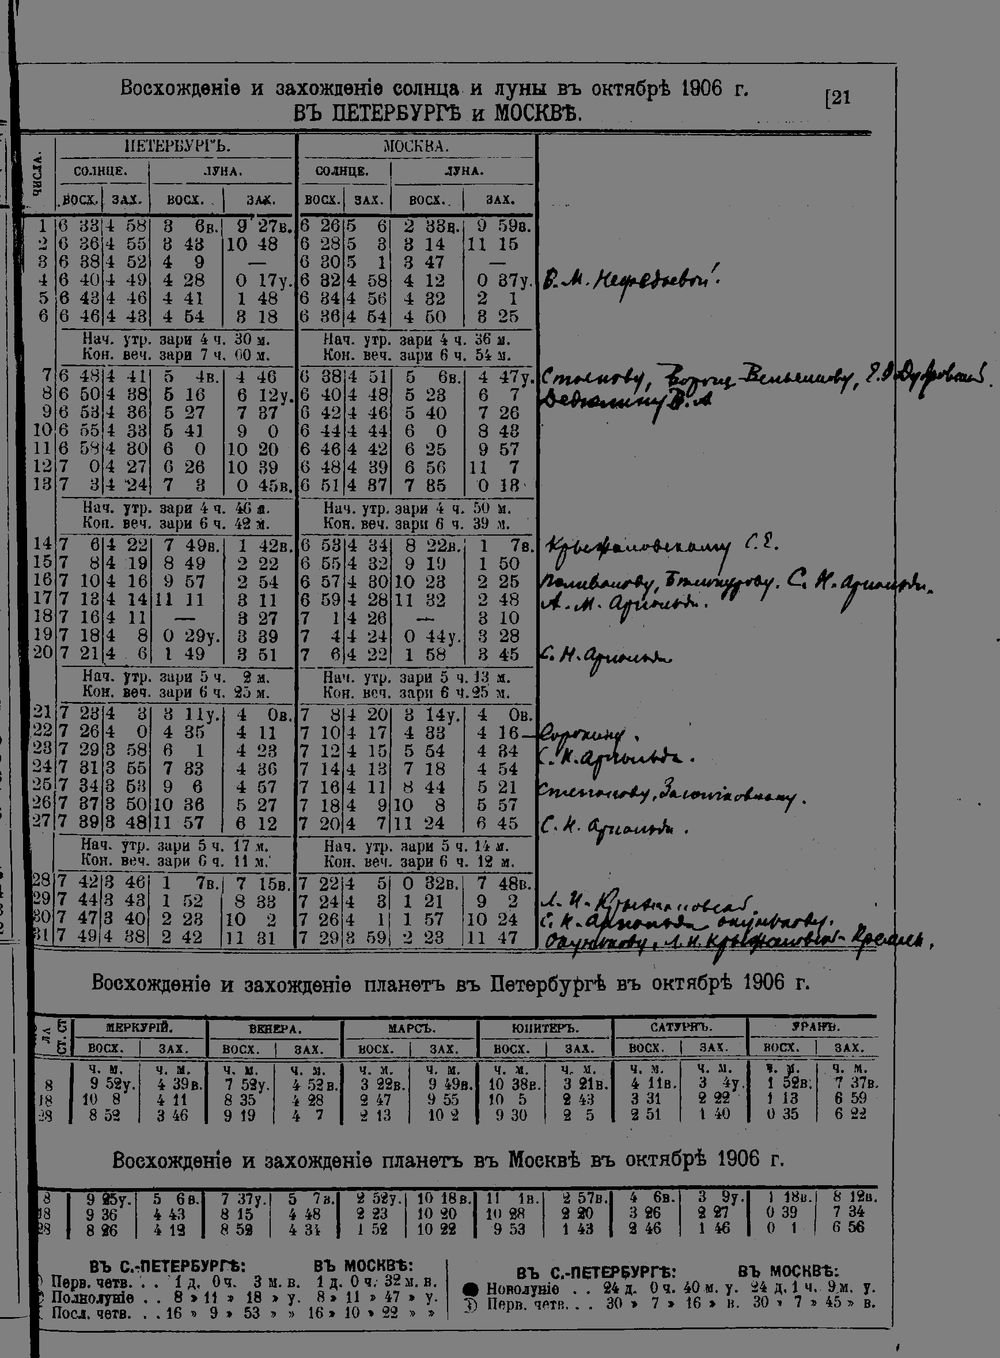 Восхожденіе и захожденіе солнца и луны въ октябрѣ 1906 г.
[21
ВЪ ПЕТЕРБУРГѢ и МОСКВѢ.
ЧИСЛА. ПЕТЕРБУРГЪ. МОСКВА.
СОЛНЦЕ. ЛУНА. СОЛНЦЕ. ЛУНА.
ВОСХ. ЗАХ. ВОСХ. ЗАХ. ВОСХ. ЗАХ. ВОСХ. ЗАХ.
1 6 33 4 58 3 6в. 9 27в. 6 26 5 6 2 33в. 9 59в.
2 6 36 4 55 3 43 10 48 6 28 5 3 3 14 11 15
3 6 38 4 52 4 9 — 6 30 5 1 3 47 —
4 6 40 4 49 4 28 0 17у. 6 32 4 58 4 12 0 37у. В. М.
5 6 43 4 46 4 41 1 48 6 34 4 56 4 32 2 1
6 6 46 4 43 4 54 3 18 6 36 4 54 4 50 3 25
Нач. утр. зари 4 ч. 30 м. Нач. утр. зари 4 ч. 36 м.
Кон. веч. зари 7 ч. 00 м. Кон. веч. зари 6 ч. 54 м.
7 6 48 4 41 5 4в. 4 46 6 38 4 51 5 6в. 4 47у.
8 6 50 4 38 5 16 6 12у. 6 40 4 48 5 23 6 7 Дедюлину В. А
9 6 53 4 36 5 27 7 37 6 42 4 46 5 40 7 26
10 6 55 4 33 5 41 9 0 6 44 4 44 6 0 8 43
11 6 58 4 30 6 0 10 20 6 46 4 42 6 25 9 57
12 7 0 4 27 6 26 10 39 6 48 4 39 6 56 11 7
13 7 3 4 24 7 3 0 45в. 6 51 4 37 7 35 0 13
Нач. утр. зари 4 ч. 46 м. Нач. утр. зари 4 ч. 50 м.
Кон. веч. зари 6 ч. 42 м. Кон. веч. зари 6 ч. 39 м.
14 7 6 4 22 7 49в. 1 42в. 6 53 4 34 8 22в. 1 7в. Крыжановскому С. Е.
15 7 8 4 19 8 49 2 22 6 55 4 32 9 19 1 50
16 7 10 4 16 9 57 2 54 6 57 4 30 10 23 2 25 Поливанову, С. Н. Арнольди.
17 7 13 4 14 11 11 3 11 6 59 4 28 11 32 2 48 А. М. Арнольди.
18 7 16 4 11 — 3 27 7 1 4 26 — 3 10
19 7 18 4 8 0 29у. 3 39 7 4 4 24 0 44у. 3 28
20 7 21 4 6 1 49 3 51 7 6 4 22 1 58 3 45 С. Н. Арнольди
Нач. утр. зари 5 ч. 2 м. Нач. утр. зари 5 ч. 13 м.
Кон. веч. зари 6 ч. 25 м. Кон. веч. зари 6 ч. 25 м.
21 7 23 4 3 3 11у. 4 0в. 7 8 4 20 3 14у. 4 0в.
22 7 26 4 0 4 35 4 11 7 10 4 17 4 33 4 16 Сорокину.
23 7 29 3 58 6 1 4 23 7 12 4 15 5 54 4 34 С. Н. Арнольди.
24 7 31 3 55 7 33 4 36 7 14 4 13 7 18 4 54
25 7 34 3 53 9 6 4 57 7 16 4 11 8 44 5 21 Степанову,
26 7 37 3 50 10 36 5 27 7 18 4 9 10 8 5 57
27 7 39 3 48 11 57 6 12 7 20 4 7 11 24 6 45 С. Н. Арнольди.
Нач. утр. зари 5 ч. 17 м. Нач. утр. зари 5 ч. 14 м.
Кон. веч. зари 6 ч. 11 м. Кон. веч. зари 6 ч. 12 м.
28 7 42 3 46 1 7в. 7 15в. 7 22 4 5 0 32в. 7 48в.
29 7 44 3 43 1 52 8 33 7 24 4 3 1 21 9 2 Л. И. Крыжановской.
30 7 47 3 40 2 23 10 2 7 26 4 1 1 57 10 24 С. Н. Арнольди Окунькову.
31 7 49 4 38 2 42 11 31 7 29 3 59 2 23 11 47 Окунькову, Л. И. Крыжановской-
Восхожденіе и захожденіе планетъ въ Петербургѣ въ октябрѣ 1906 г.
МЕРКУРІЙ. ВЕНЕРА. МАРСЪ. ЮПИТЕРЪ. САТУРНЪ. УРАНЪ.
ЛА СТ. СТ. ВОСХ. ЗАХ. ВОСХ. ЗАХ. ВОСХ. ЗАХ. ВОСХ. ЗАХ. ВОСХ. ЗАХ. ВОСХ. ЗАХ.
ч. м. ч. м. ч. м. ч. м. ч. м. ч. м. ч. м. ч. м. ч. м. ч. м. ч. м. ч. м.
8 9 52у. 4 39в. 7 52у. 4 52в. 3 22в. 9 49в. 10 38в. 3 21в. 4 11в. 3 4у. 1 52в. 7 37в.
18 10 8 4 11 8 35 4 28 2 47 9 55 10 5 2 43 3 31 2 22 1 13 6 59
28 8 52 3 46 9 19 4 7 2 13 10 2 9 30 2 5 2 51 1 40 0 35 6 22
Восхожденіе и захожденіе планетъ въ Москвѣ въ октябрѣ 1906 г.
8 9 25у. 5 6в. 7 37у. 5 7в. 2 52у. 10 18в. 11 1в. 2 57в. 4 6в. 3 9у. 1 18в. 8 12в.
18 9 36 4 43 8 15 4 48 2 23 10 20 10 28 2 20 3 26 2 27 0 39 7 34
28 8 26 4 12 8 52 4 34 1 52 10 22 9 53 1 43 2 46 1 46 0 1 6 56
ВЪ С.-ПЕТЕРБУРГѢ: ВЪ МОСКВѢ:
Перв. четв. . . 1 д. 0 ч. 3 м. в. 1 д. 0 ч. 32 м. в.
Полнолуніе . . 8 » 11 » 18 » у. 8 » 11 » 47 » у.
Посл. четв. . . 16 » 9 » 53 » » 16 » 10 » 22 » »
ВЪ С.-ПЕТЕРБУРГѢ: ВЪ МОСКВѢ:
Новолуніе . . 24 д. 0 ч. 40 м. у. 24 д. 1 ч. 9 м. у.
Перв. четв. . . 30 » 7 » 16 » в. 30 » 7 » 45 » в.